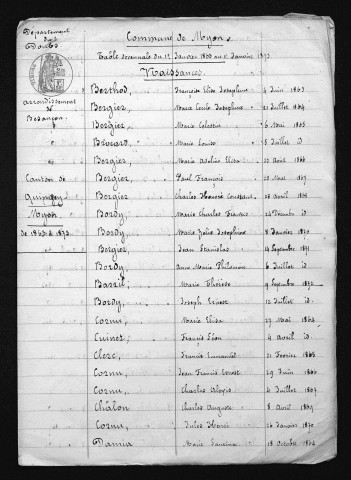 Département
du
Doubs
Commune de Myon
Table décennale du 1er Janvier 1863 au 1er Janvier 1873
Naissances
arrondissement
de
Besançon
Canton de
Quingey
Myon
de 1863 à 1873
Berthod, François Elise Joséphine 4 Juin 1863
Bergier, Marie Louise Joséphine 21 Juillet 1864
Bergier, Marie Celestin 6 Mai 1865
Marie Louise 8 Juillet id
Bergier, Marie Adeline Elisa 20 Août 1866
Bergier, Paul François 20 Mai 1867
Bergier, Charles Honoré Constant 28 Avril 1868
Bordy, Marie Charles 24 Décembre id
Bordy, Marie Julie Joséphine 8 Janvier 1870
Bergier, Jean Stanislas 14 Septembre 1871
Bordy, Anne Marie Philomène 6 Juillet id
Barril, Marie Thérèse 9 Septembre 1872
Bordy, Joseph Ernest 12 Juillet id
Cornu, Marie Elisa 27 Mai 1864
Cuinet, Francis Léon 4 Avril id
Clerc, Francis Emmanuel 21 Février 1865
Cornu, Jean Francis Ernest 29 Juin 1866
Cornu, Charles Aloys 4 Juillet 1867
Châlon Charles Auguste 8 Avril 1869
Cornu, Jules Honoré 26 Janvier 1870
Damia 18 Octobre 1864